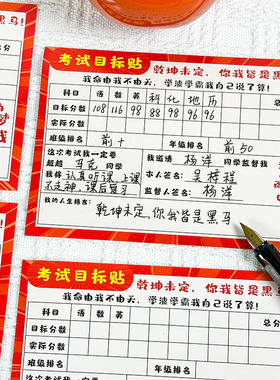 是黑马!
考试目标贴 乾坤未定,你我皆是黑
我命由我不由天,学渣学霸我自己说了算!
科目 语 数 英 科 化 地 历
目标分数 108 116 98 88 98 96 96
实际分数
班级排名 前十 年级排名 前50
这次考试我一定要
超越 马克 同学 我邀请 杨洋 同学监督我
我将 认真听课,上课 本人签名:
不走神,课后复习 监督人签名: 杨洋
我的人生格言:
乾坤未定,你我皆是黑马
考试目标贴 乾坤未定,你我皆是黑
我命由我不由天,学渣学霸我自己说了算!
科目 语 数 英
目标分数
实际分数
班级排名 年级排名
这次考试我一定要